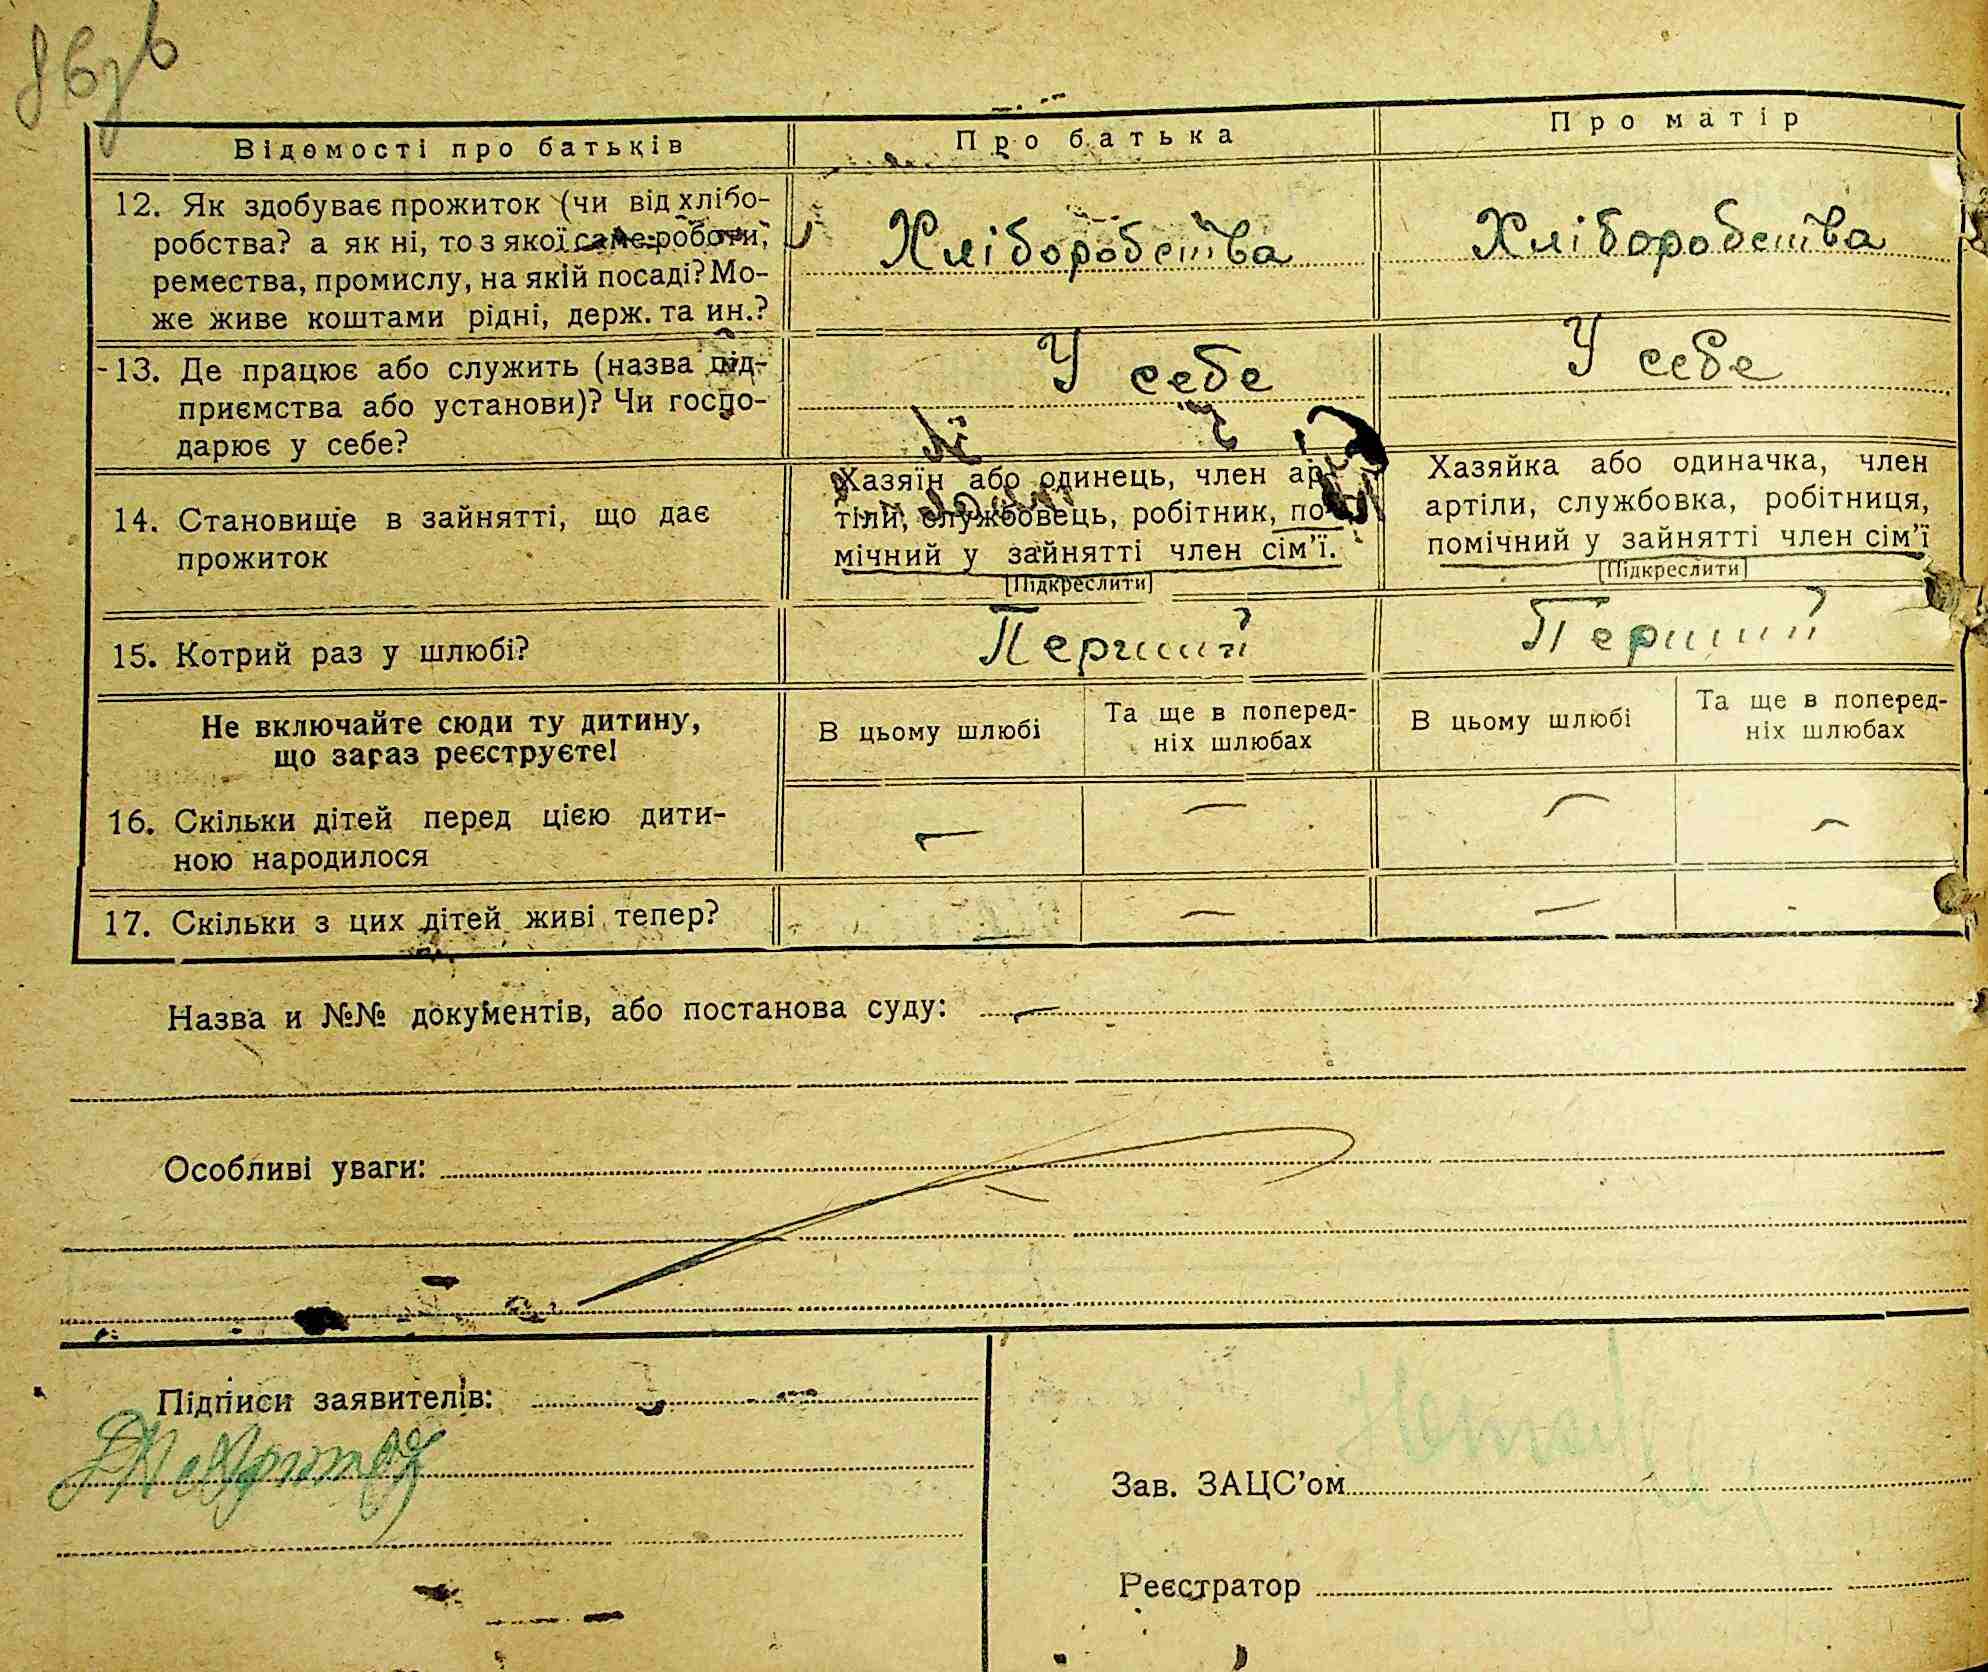 Відомості про батьків
Про батька
Про матір
12. Як здобуває прожиток (чи від хлібо-
робства? а як ні, то з якої саме роботи,
ремества, промислу, на якій посаді? Мо-
же живе коштами рідні, держ. та ин.?
Хліборобства
Хліборобства
13. Де працює або служить (назва під-
приємства або установи)? Чи госпо-
дарює у себе?
У себе
У себе
14. Становище в зайнятті, що дає
прожиток
Хазяїн або одинець, член ар-
тіли, службовець, робітник, по-
мічний у зайнятті член сім’ї.
[Підкреслити]
Хазяйка або одиначка, член
артіли, службовка, робітниця,
помічний у зайнятті член сім’ї
[Підкреслити]
15. Котрий раз у шлюбі?
Перший
Перший
Не включайте сюди ту дитину,
що зараз реєструєте!
В цьому шлюбі
Та ще в поперед-
ніх шлюбах
В цьому шлюбі
Та ще в поперед-
ніх шлюбах
16. Скільки дітей перед цією дити-
ною народилося
— — — —
17. Скільки з цих дітей живі тепер?
— — — -
Назва и №№ документів, або постанова суду: —
Особливі уваги:
Підписи заявителів:
Зав. ЗАЦС’ом
Реєстратор